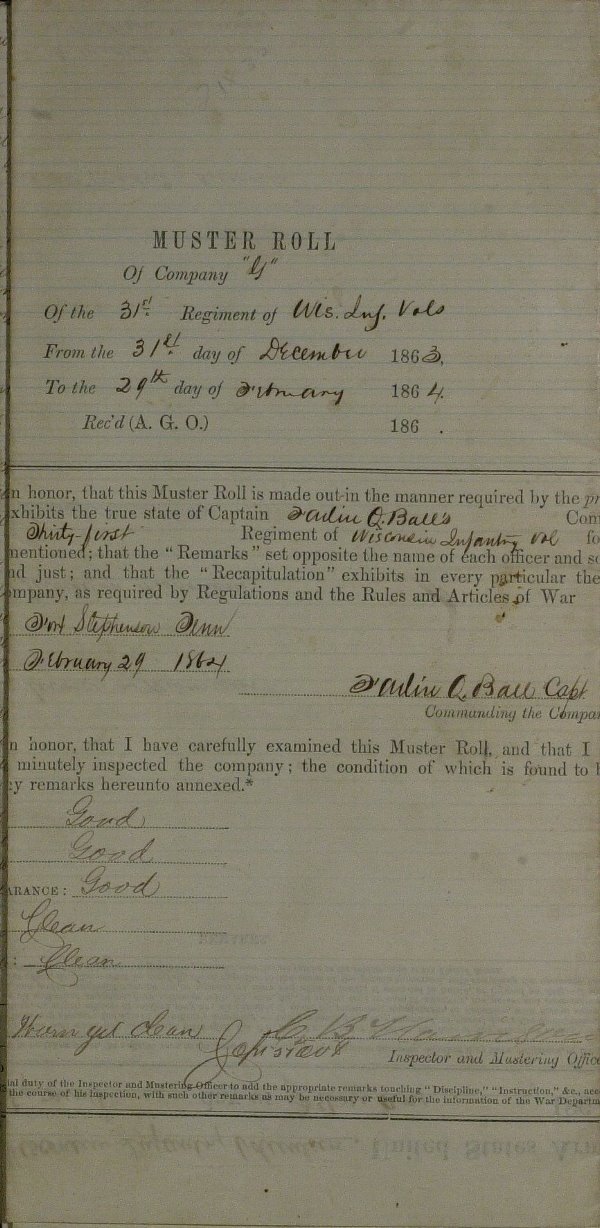 MUSTER ROLL
Of Company "G"
Of the 31st Regiment of Wis. Inf. Vols
From the 31st day of December 1863,
To the 29th day of February 1864.
Rec'd (A. G. O.) 186 .
n honor, that this Muster Roll is made out in the manner required by the pr
xhibits the true state of Captain Farlin Q. Ball's Com
Thirty-first Regiment of Wisconsin Infantry Vol fo
mentioned; that the "Remarks" set opposite the name of each officer and so
nd just; and that the "Recapitulation" exhibits in every particular the
ompany, as required by Regulations and the Rules and Articles of War
Fort Stephenson Tenn
February 29 1864
Farlin Q. Ball Capt
Commanding the Compan
n honor, that I have carefully examined this Muster Roll, and that I
minutely inspected the company; the condition of which is found to b
y remarks hereunto annexed.*
Good
Good
ARANCE: Good
Clean
: Clean
clean
Inspector and Mustering Office
ial duty of the Inspector and Mustering Officer to add the appropriate remarks touching "Discipline," "Instruction," &c., acc
the course of his inspection, with such other remarks as may be necessary or useful for the information of the War Departm